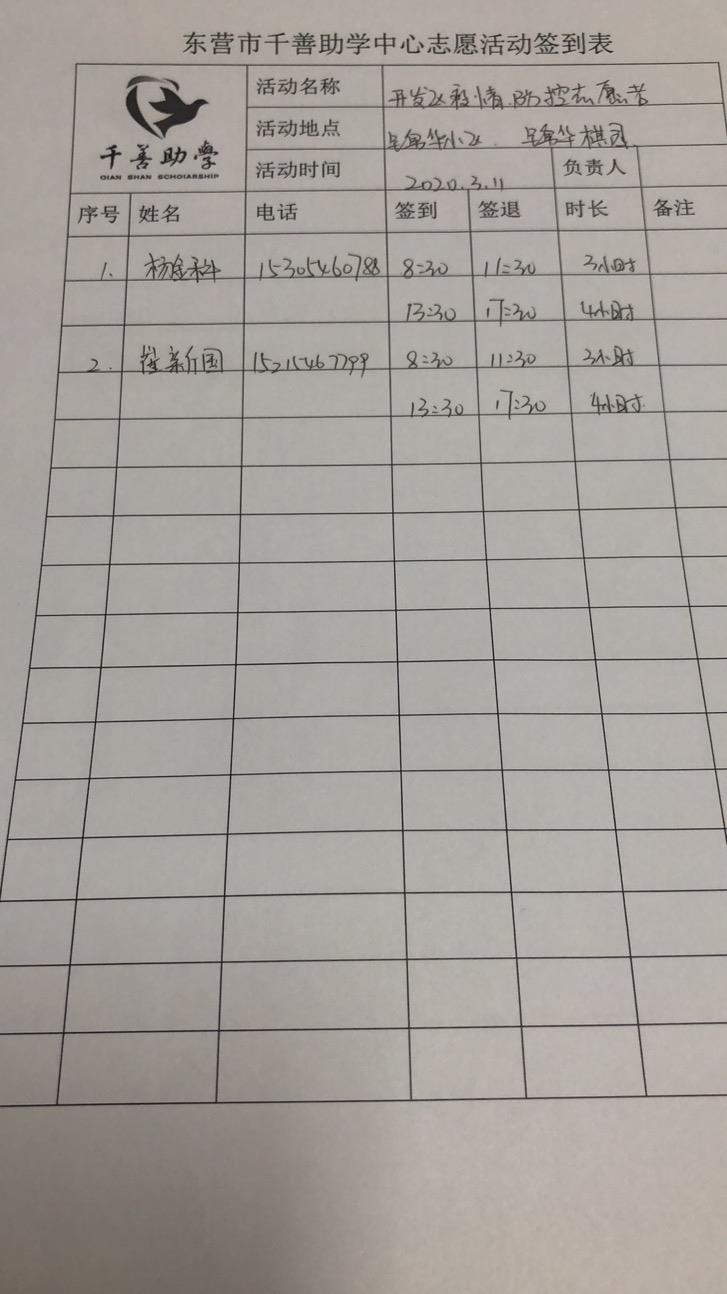 东营市千善助学中心志愿活动签到表
千善助学
QIAN SHAN SCHOIARSHIP
活动名称 开发区疫情防控志愿者
活动地点
活动时间 2020.3.11 负责人
序号 姓名 电话 签到 签退 时长 备注
1. 15305460788 8:30 11:30 3小时
13:30 17:30 4小时
2. 新国 15215467799 8:30 11:30 3小时
13:30 17:30 4小时